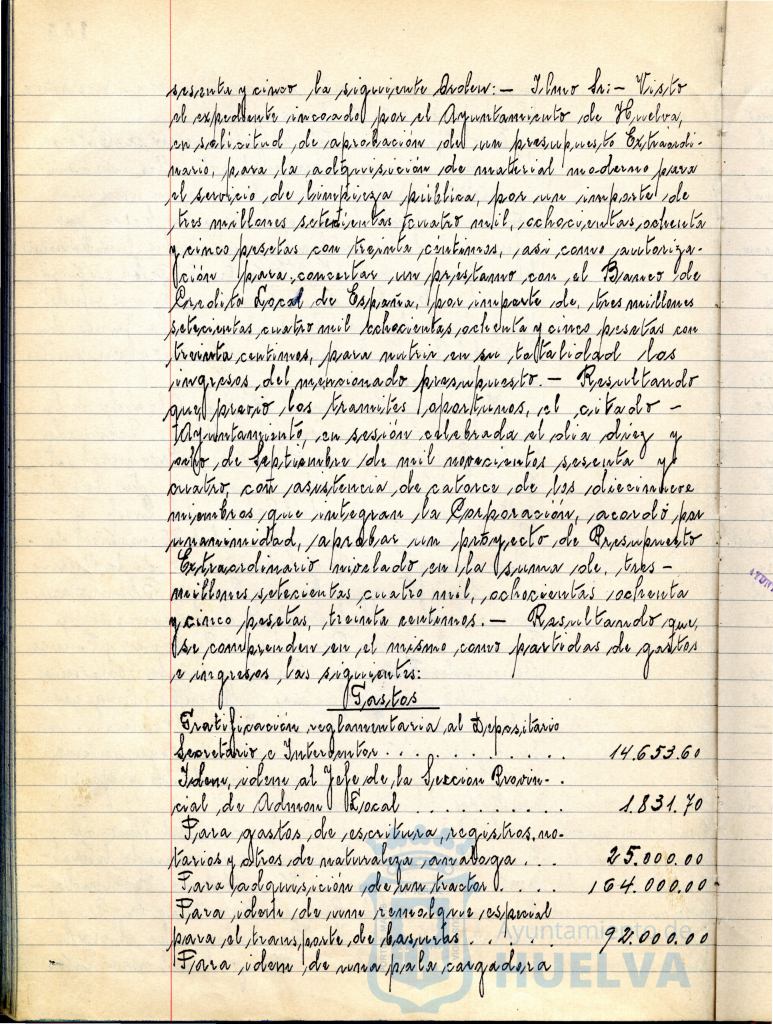 sesenta y cinco la siguiente Orden:— Ilmo Sr:— Visto
el expediente incoado por el Ayuntamiento de Huelva,
en solicitud de aprobación de un presupuesto Extraordi-
nario, para la adquisición de material moderno para
el servicio de limpieza pública, por un importe de
tres millones setecientas cuatro mil, ochocientas, ochenta
y cinco pesetas con treinta céntimos, asi como autoriza-
ción para concertar un préstamo con el Banco de
Credito Local de España, por importe de, tres millones
setecientas cuatro mil ochocientas, ochenta y cinco pesetas con
treinta centimos, para nutrir en su totalidad los
ingresos del mencionado presupuesto.— Resultando
que, previo los tramites oportunos, el citado —
Ayuntamiento, en sesión celebrada el dia diez y
ocho de Septiembre de mil novecientos sesenta y
cuatro, con asistencia de catorce de los diecinueve
miembros que integran la Corporación, acordó por
unanimidad, aprobar un proyecto de Presupuesto
Extraordinario nivelado en la suma de, tres-
millones, setecientas cuatro mil, ochocientas ochenta
y cinco pesetas, treinta centimos.— Resultando que,
se comprenden en el mismo como partidas de gastos
e ingresos, las siguientes:
Gastos
Gratificación reglamentaria al Depositario
Secretario e Interventor . . . . . . . 14.653.60
Idem, idem al Jefe de la Sección Provin-
cial de Admon Local . . . . . . . . . . 1.831.70
Para gastos de escritura, registros, no-
tarios y otros de naturaleza, analoga . . . 25.000.00
Para adquisición de un tractor . . . . 164.000.00
Para idem de una remolque especial
para el transporte de basuras . . . . . 92.000.00
Para idem de una pala cargadora
Ayuntamiento de
HUELVA